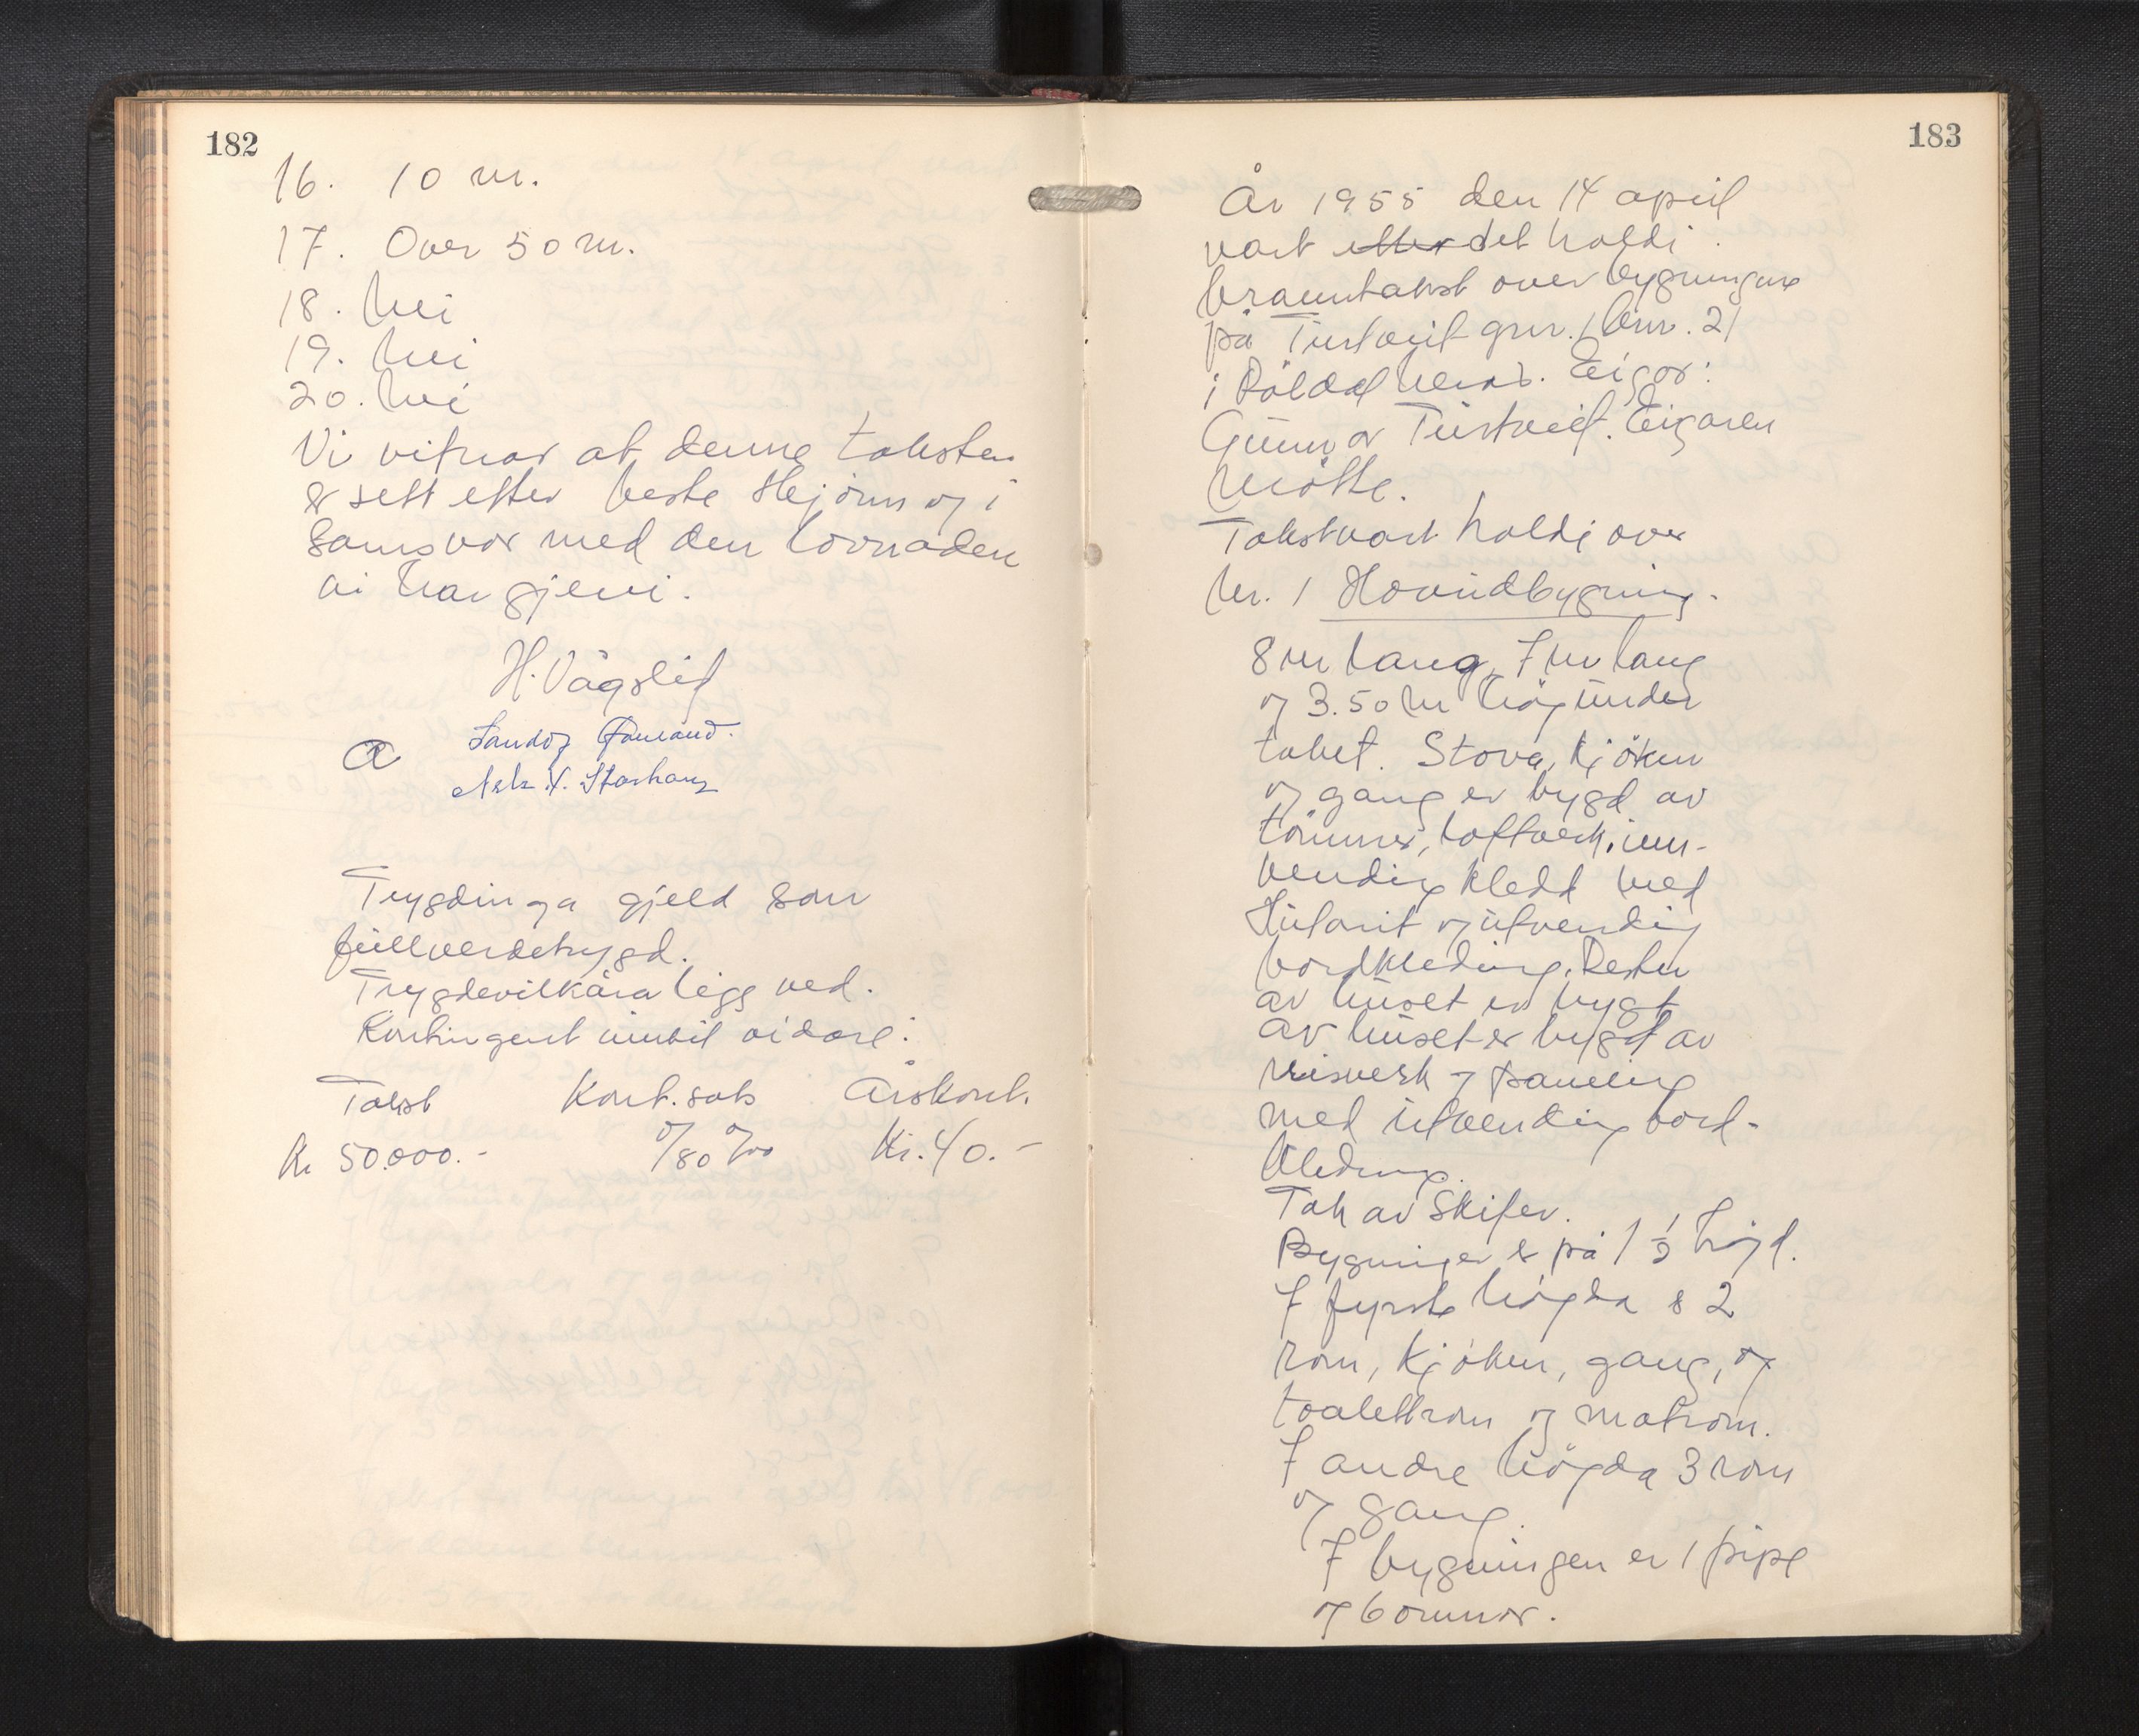 182
16. 10 m.
17. Over 50 m.
18. Nei
19. Nei
20. Nei
Vi vitnar at denne taksten
er sett etter beste skjønn og i
Samsvar med den lovnaden
vi har gjevi.
H. Vågslid
a
Asle V. Storhaug
Trygdinga gjeld som
fullverdetrygd.
Trygdevilkåra ligg ved.
Kontingent inntil vidare:
Takst Kont.sats Årskont.
Kr 50.000.- 0/80 0/00 Kr. 40.-
183
År 1955 den 14 april
vart etter det haldi
branntakst over bygningane
på Tustveit gnr. 1 bnr. 21
i Röldal herad. Eigar:
Gunnar Tustveit. Eigaren
Mötte.
Takst vart haldi over
Nr. 1 Hovudbygning.
8 m lang, 7 m lang
og 3.50 m høg under
taket. Stova, kjöken
og gang er bygd av
tömmer, loftverk, inn-
vendig kledd med
Hutonit og utvendig
bordkleding. Resten
av huset er bygt
av huset er bygd av
reisverk og paneling
med utvendig bord-
kleding.
Tak av Skifer.
Bygningen er på 1 1/2 högd.
I fyrste högda er 2
rom, kjöken, gang, og
toalettrom og matrom.
I andre högda 3 rom
og gang.
I bygningen er 1 pipe
og 6 omnar.